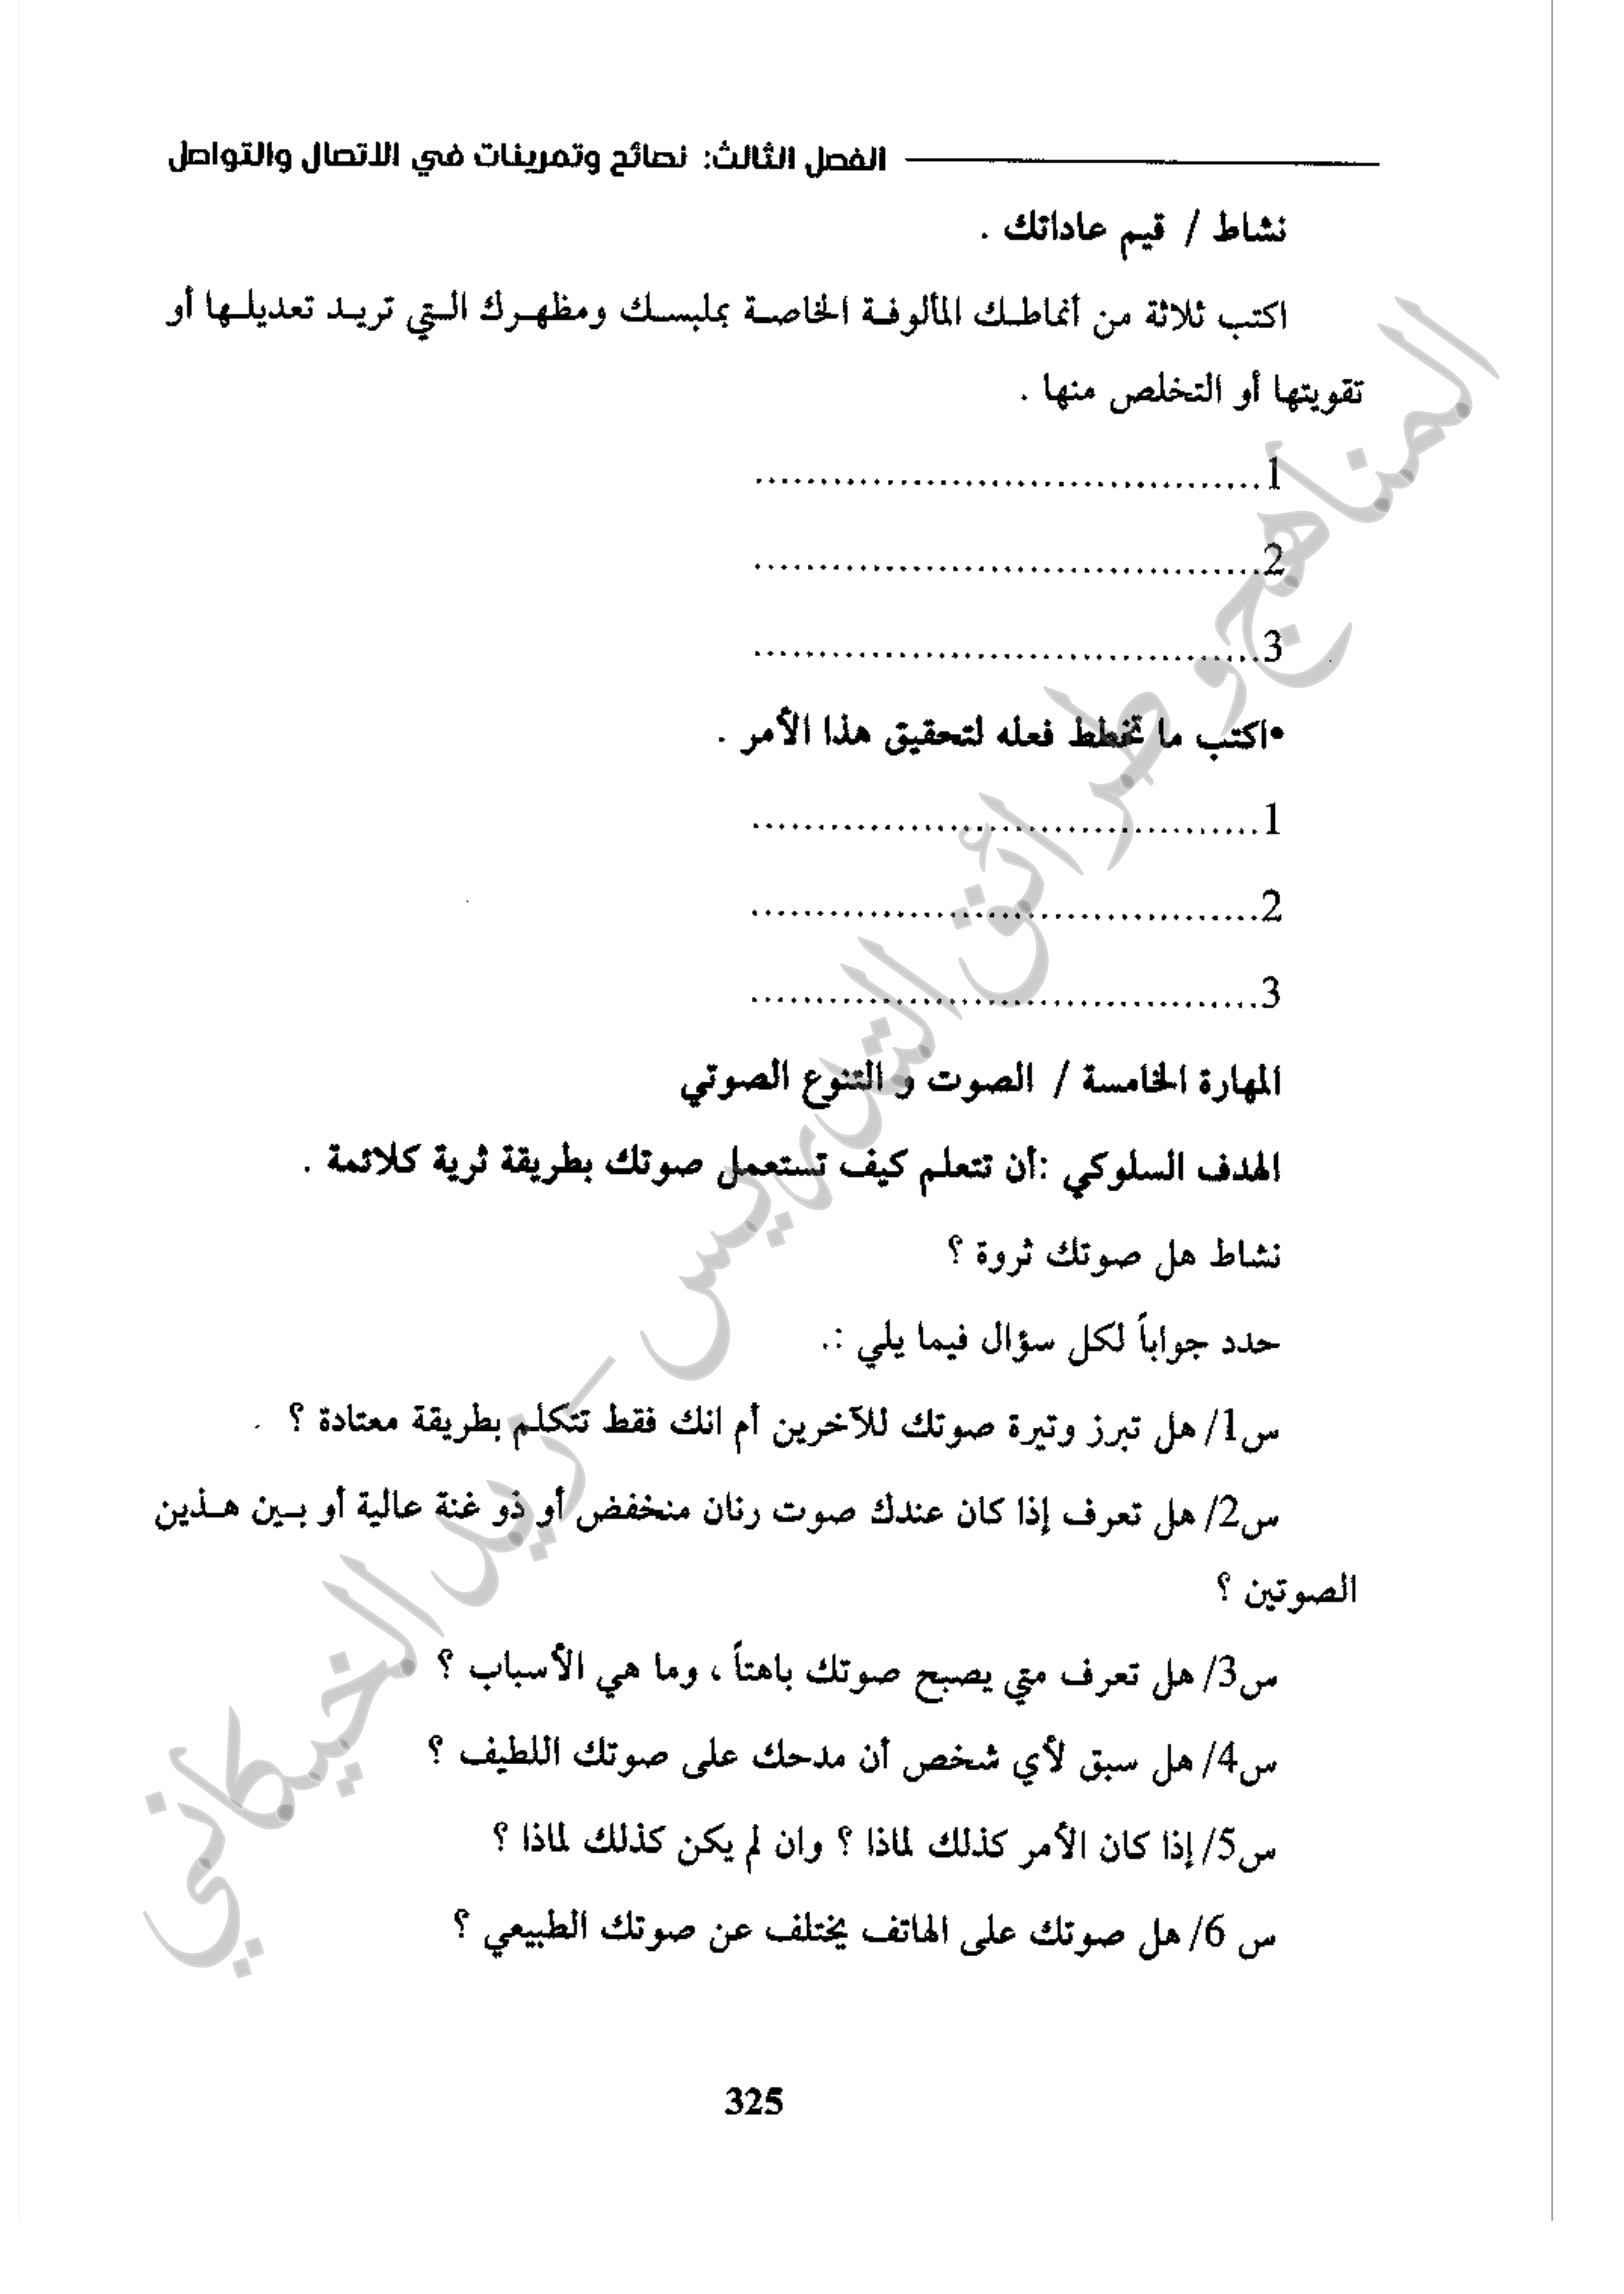 الفصل الثالث: نصائح وتمرينات في الاتصال والتواصل
نشاط / قيم عاداتك .
اكتب ثلاثة من أنماطك المألوفة الخاصة بملبسك ومظهرك التي تريد تعديلها أو
تقويتها أو التخلص منها .
1......................................
2......................................
3......................................
•اكتب ما تخطط فعله لتحقيق هذا الأمر .
1......................................
2......................................
3......................................
المهارة الخامسة / الصوت و التنوع الصوتي
الهدف السلوكي :أن تتعلم كيف تستعمل صوتك بطريقة ثرية كلائمة .
نشاط هل صوتك ثروة ؟
حدد جواباً لكل سؤال فيما يلي :.
س1/ هل تبرز وتيرة صوتك للآخرين أم انك فقط تتكلم بطريقة معتادة ؟
س2/ هل تعرف إذا كان عندك صوت رنان منخفض أو ذو غنة عالية أو بين هذين
الصوتين ؟
س3/ هل تعرف متى يصبح صوتك باهتاً ، وما هي الأسباب ؟
س4/ هل سبق لأي شخص أن مدحك على صوتك اللطيف ؟
س5/ إذا كان الأمر كذلك لماذا ؟ وان لم يكن كذلك لماذا ؟
س 6/ هل صوتك على الهاتف يختلف عن صوتك الطبيعي ؟
325
المناهج وطرائق التدريس - زيد الخيكاني